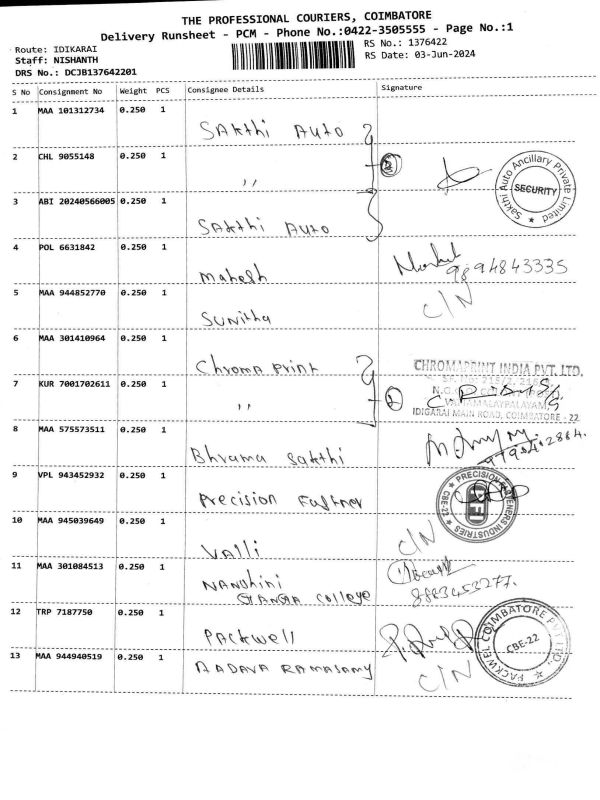 THE PROFESSIONAL COURIERS, COIMBATORE
Delivery Runsheet - PCM - Phone No.:0422-3505555 - Page No.:1
Route: IDIKARAI
RS No.: 1376422
Staff: NISHANTH
RS Date: 03-Jun-2024
DRS No.: DCJB137642201
S No Consignment No Weight PCS Consignee Details Signature
1 MAA 101312734 0.250 1 Sakthi Auto
2 CHL 9055148 0.250 1 ,,
Sakthi Auto Ancillary Private Limited
SECURITY
3 ABI 20240566005 0.250 1 Sakthi Auto
4 POL 6631842 0.250 1 Mahesh
9894843335
5 MAA 944852770 0.250 1 Sunitha C/N
6 MAA 301410964 0.250 1 Chroma Print
CHROMAPRINT INDIA PVT. LTD.
7 KUR 7001702611 0.250 1 ,,
IDIGARAI MAIN ROAD, COIMBATORE - 22
8 MAA 575573511 0.250 1 Bhrama Sakthi
9 VPL 943452932 0.250 1 Precision Fastner
PRECISION FASTENERS INDUSTRIES
CBE-22
10 MAA 945039649 0.250 1 Valli C/N
11 MAA 301084513 0.250 1 Nandhini
College
8883453277.
12 TRP 7187750 0.250 1 Packwell
PACKWEL COIMBATORE PVT LTD.
CBE-22
13 MAA 944940519 0.250 1 AADAVA RAMASAMY C/N